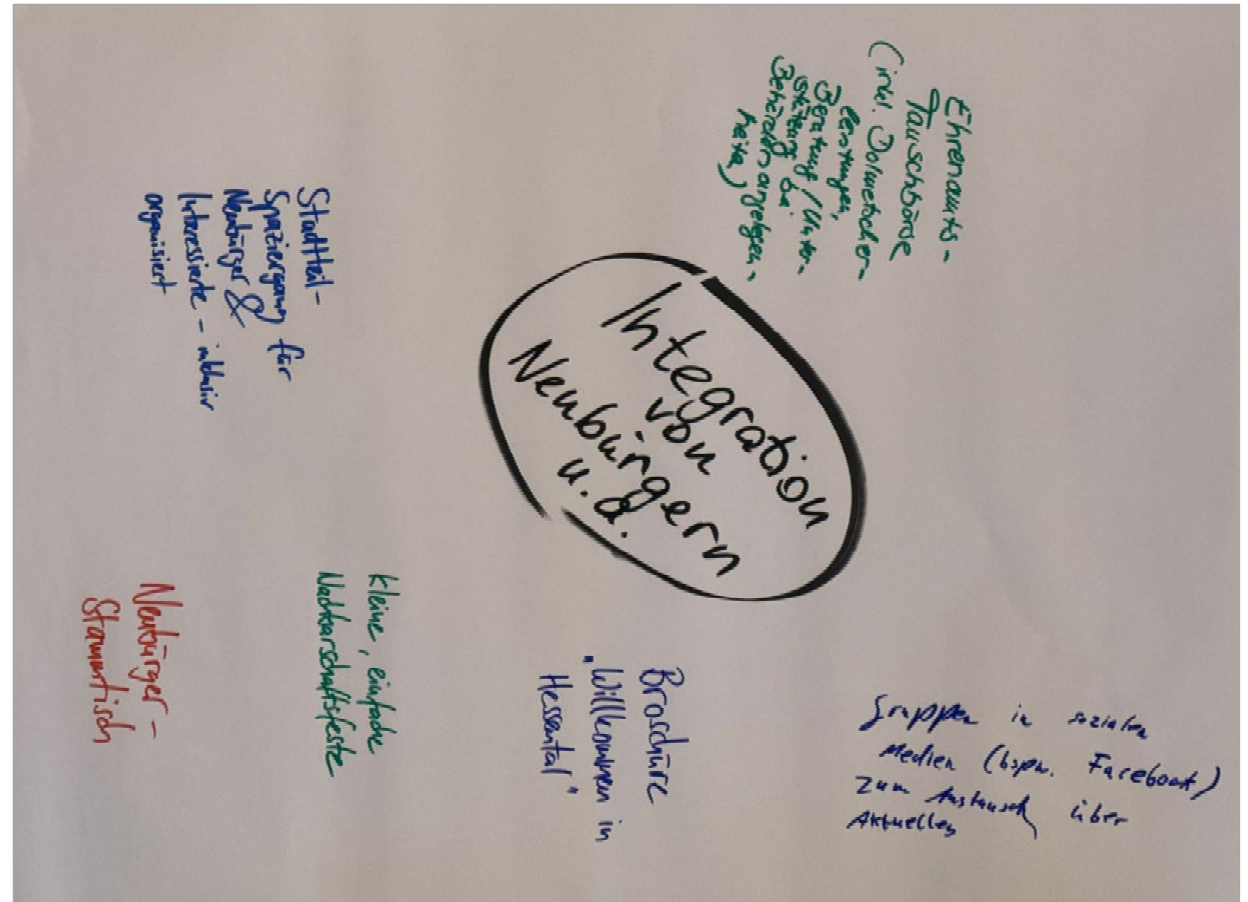 Integration
von
Neubürgern
u.ä.
Ehrenamts-
Tauschbörse
(inkl. Dolmetscher-
leistungen,
Beratung/Unter-
stützung bei
Behördenangelegen-
heiten)
Stadtteil-
Spaziergang für
Neubürger &
Interessierte - inklusiv
organisiert
kleine, einfache
Nachbarschaftsfeste
Neubürger-
Stammtisch
Broschüre
„Willkommen in
Hessental"
Gruppen in sozialen
Medien (bspw. Facebook)
zum Austausch über
Aktuelles